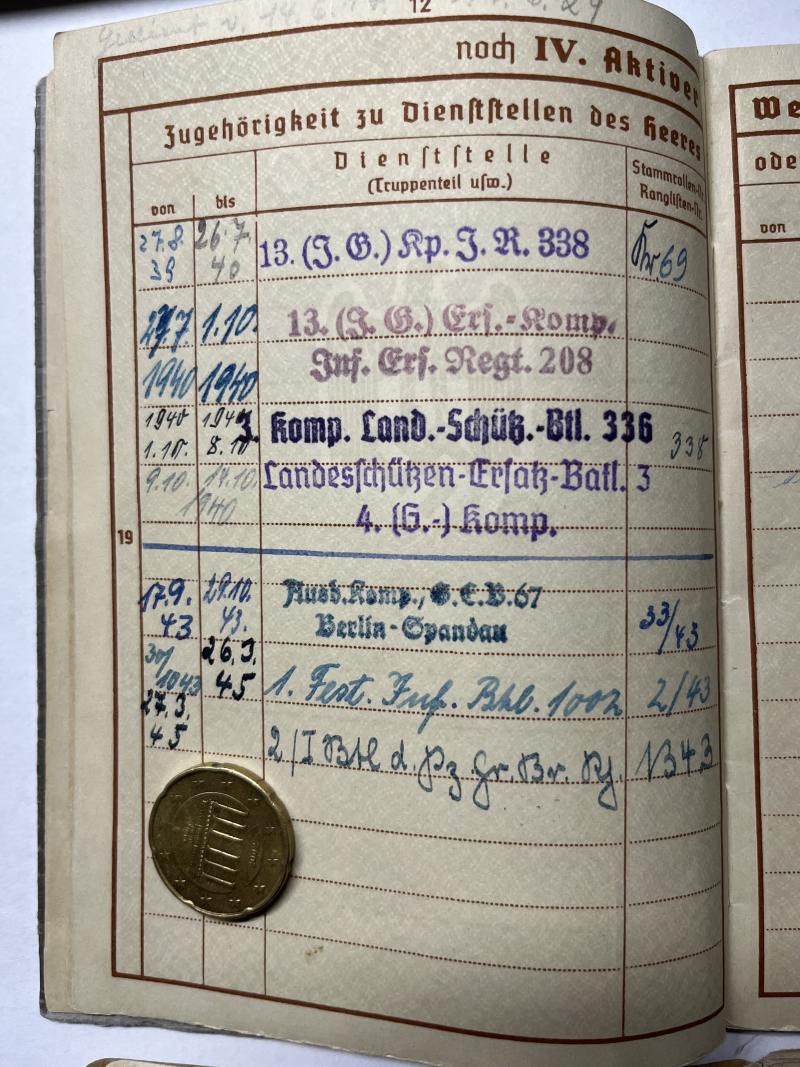 12
noch IV. Aktiver
Zugehörigkeit zu Dienststellen des Heeres
von
bis
Dienststelle
(Truppenteil usw.)
Stammrollen-Nr.
Ranglisten-Nr.
27.8. 39
26.7. 40
13. (J. G.) Kp. J. R. 338
Kr. 69
27.7. 1940
1.10. 1940
13. (J. G.) Ers.-Komp.
Inf. Ers. Regt. 208
1940 1.10.
1940 8.10
3. Komp. Land.-Schütz.-Btl. 336
338
9.10.
14.10.
1940
Landesschützen-Ersatz-Batl. 3
4. (G.-) Komp.
19
17.9. 43
29.10. 43.
Ausb.Komp., G.E.B.67
Berlin-Spandau
33/43
30/1043
26.3. 45
1. Fest. Inf. Btl. 1002
2/43
27.3. 45
2/I Btl d. Pz Gr. Br.
We
ode
von